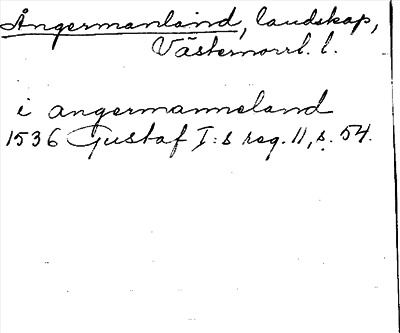 Ångermanland, landskap,
Västernorrl. l.
i angermanneland
1536 Gustaf I:s reg. 11, s. 54.